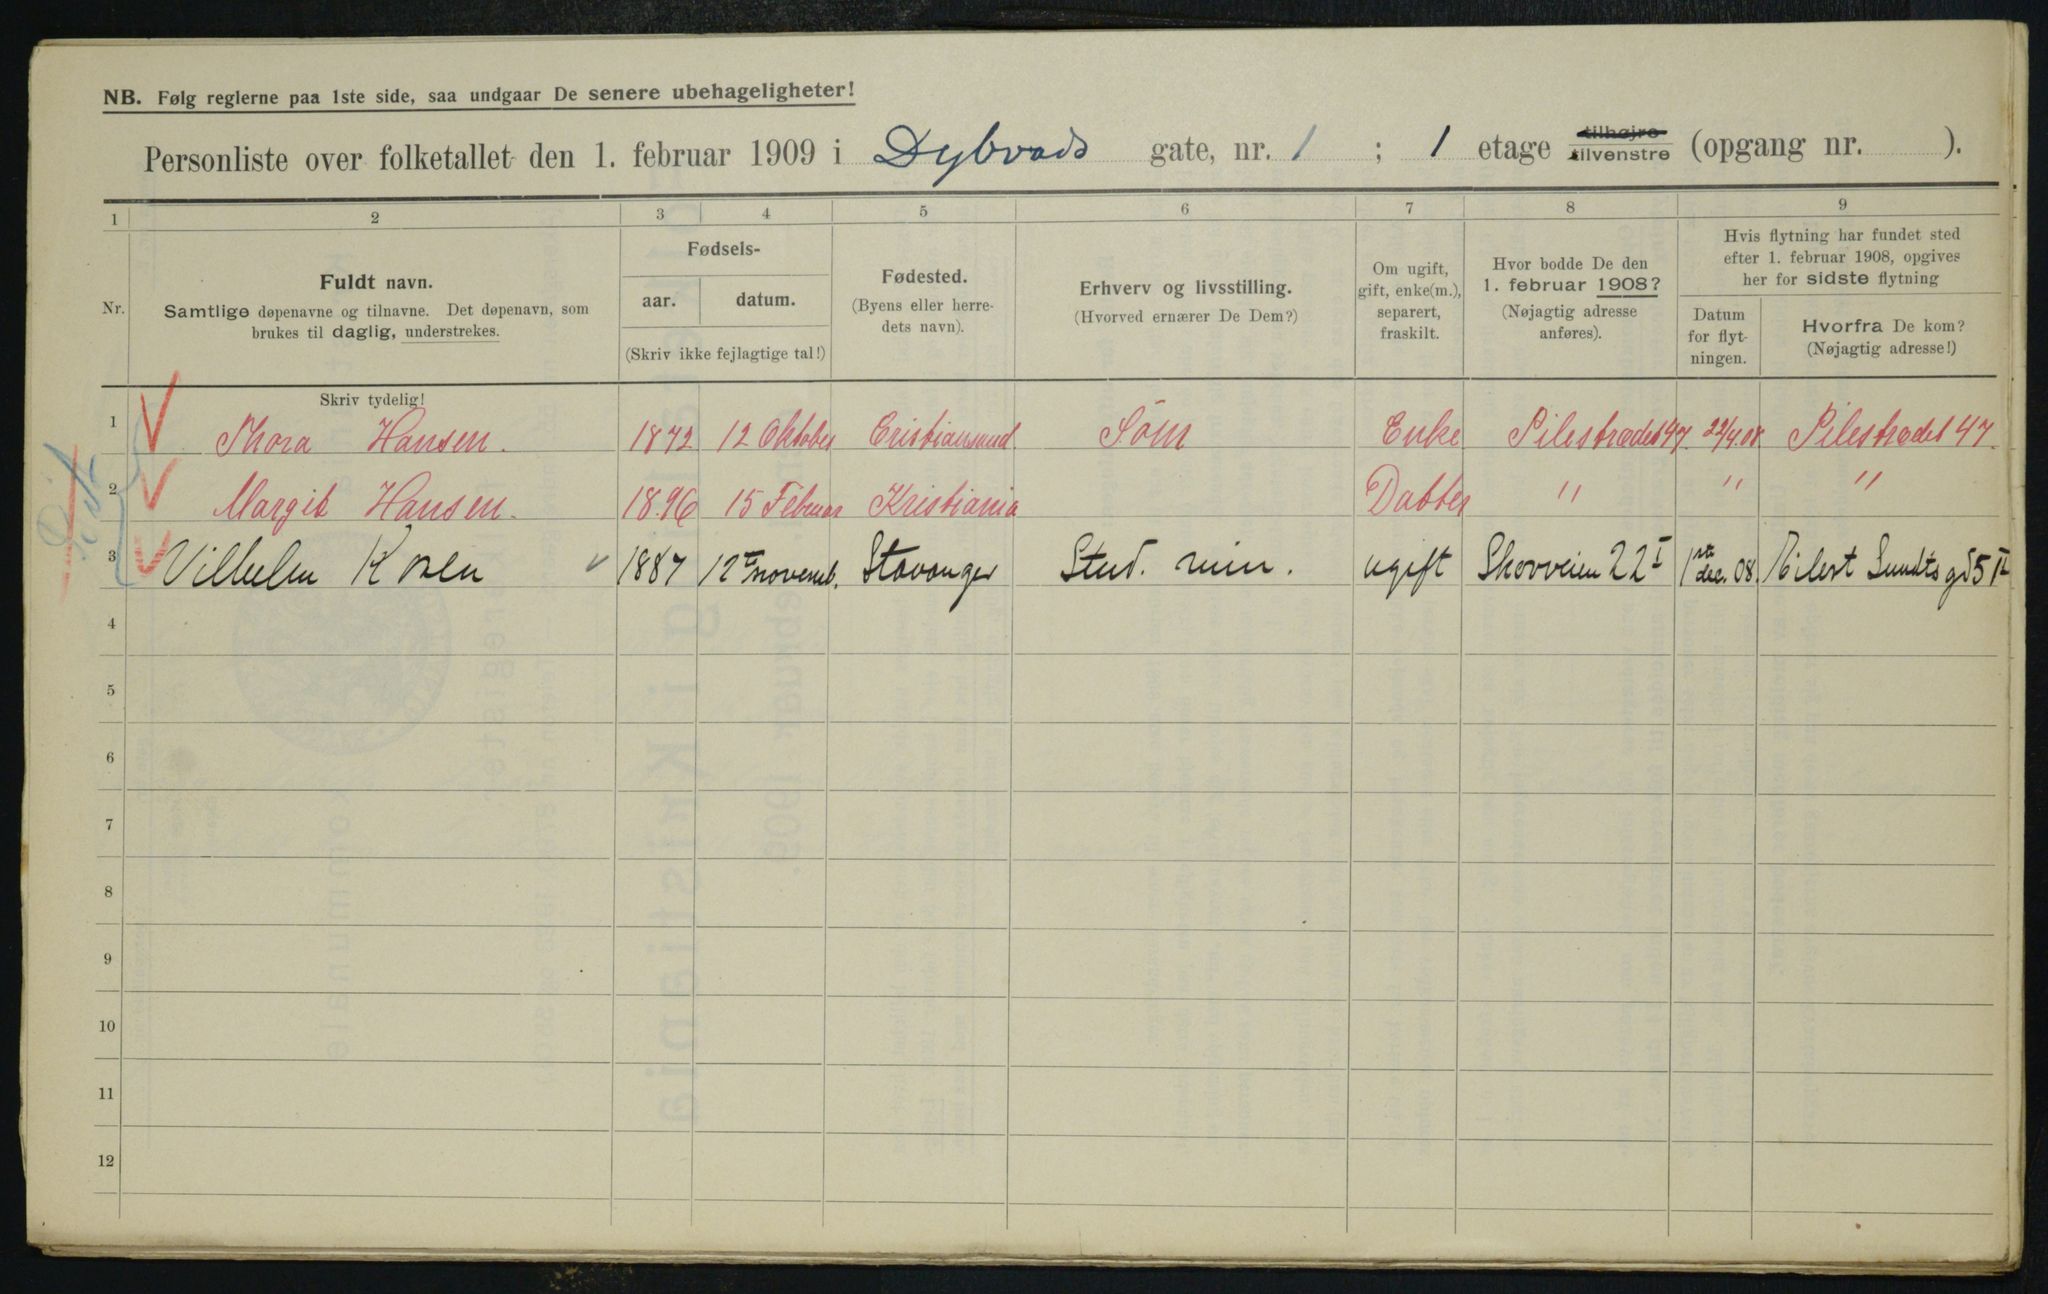 NB. Følg reglerne paa 1ste side, saa undgaar De senere ubehageligheter!
Personliste over folketallet den 1. februar 1909 i Dybvads gate, nr. 1 ; 1 etage tilhøjre tilvenstre (opgang nr. ).
1 2 3 4 5 6 7 8 9
Nr.
Fuldt navn.
Samtlige døpenavne og tilnavne. Det døpenavn, som
brukes til daglig, understrekes.
Fødsels-
aar. datum.
(Skriv ikke fejlagtige tal!)
Fødested.
(Byens eller herre-
dets navn).
Erhverv og livsstilling.
(Hvorved ernærer De Dem?)
Om ugift,
gift, enke(m.),
separert,
fraskilt.
Hvor bodde De den
1. februar 1908?
(Nøjagtig adresse
anføres).
Hvis flytning har fundet sted
efter 1. februar 1908, opgives
her for sidste flytning
Datum
for flyt-
ningen.
Hvorfra De kom?
(Nøjagtig adresse!)
Skriv tydelig!
1 Thora Hansen. 1872 12 Oktober Cristiansund Söm Enke Pilestrædet 47. 22/4.08. Pilestrædet 47.
2 Margit Hansen. 1896 15 Februar Kristiania Datter " " "
3 Vilhelm Koren 1887 12te novemb. Stavanger Stud. min. ugift Skovveien 22 I 1ste dec. 08. Eilert Sundts gd 5 II
4
5
6
7
8
9
10
11
12